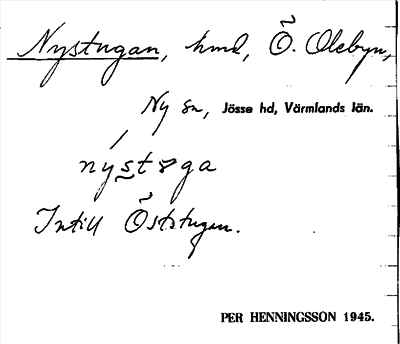 Nystugan, hmd, Ö. Oleby,
Ny sn, Jösse hd, Värmlands län.
nýstȣga
Intill Öststugan.
PER HENNINGSSON 1945.